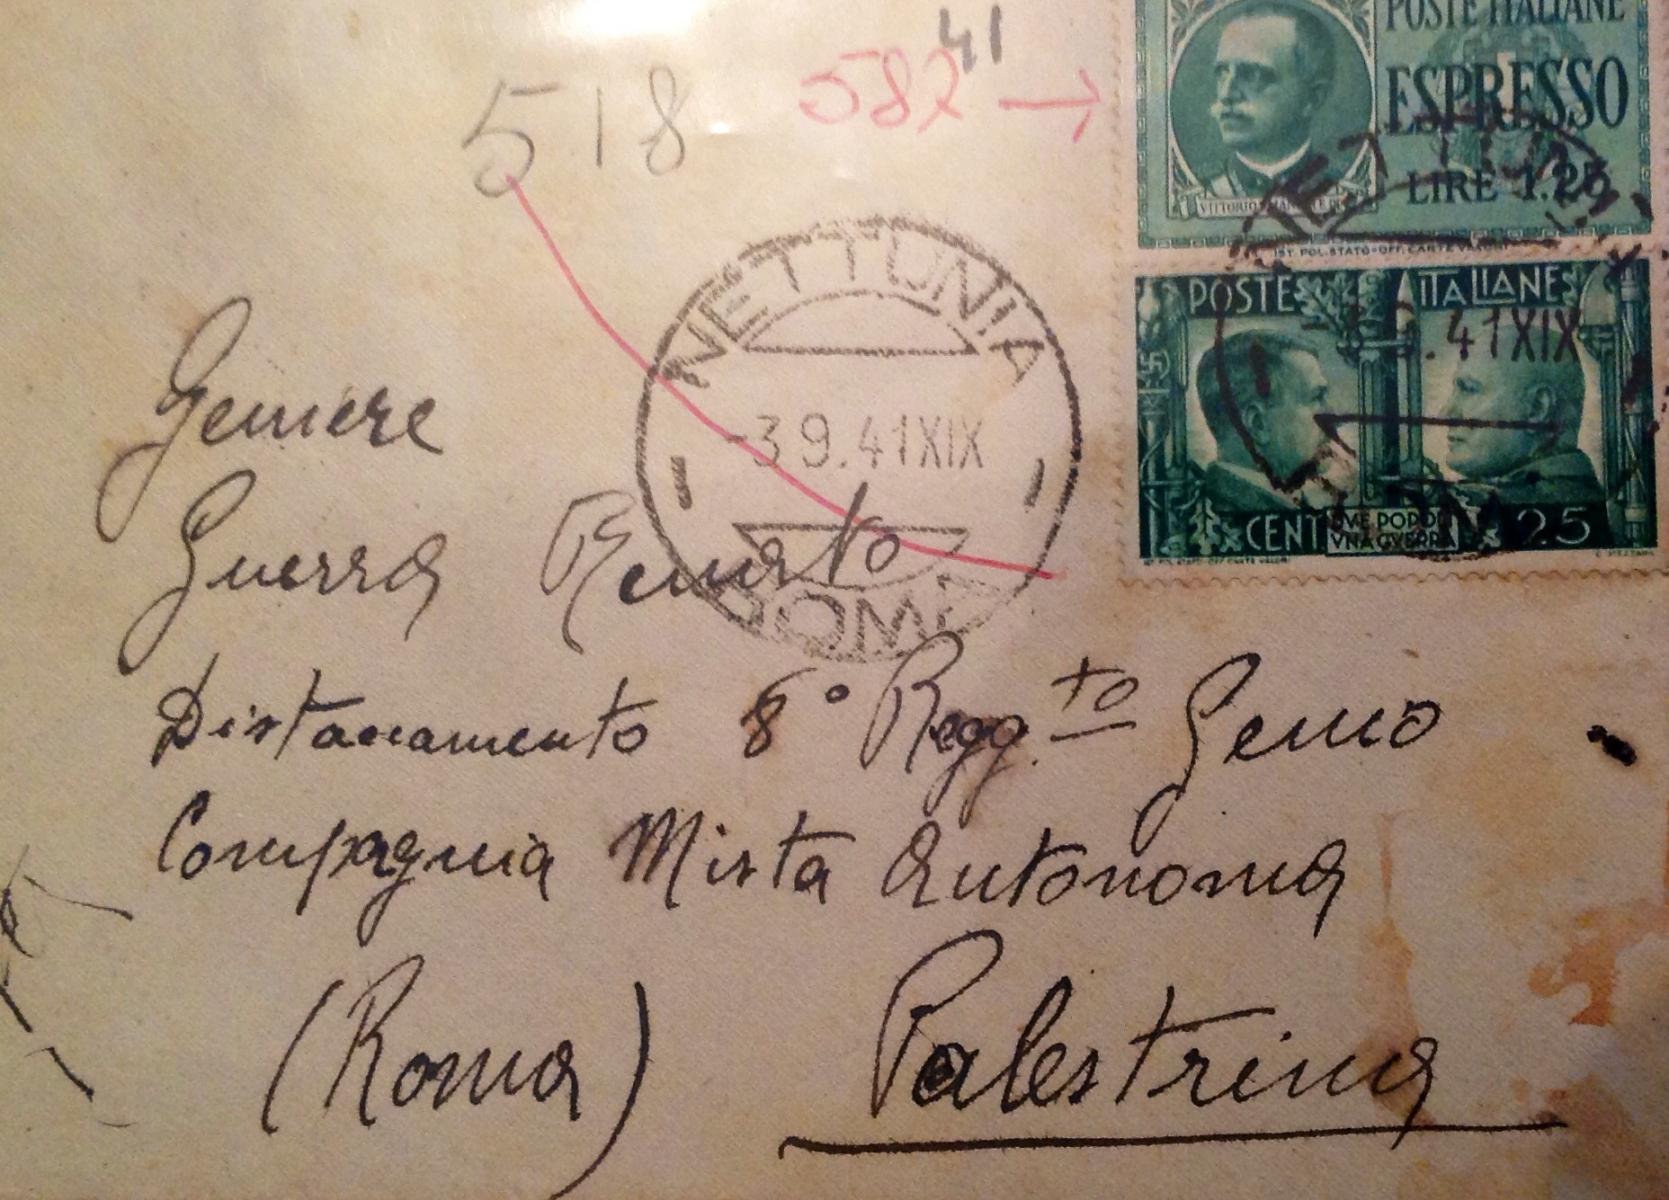 41
518 582 →
POSTE ITALIANE
ESPRESSO
LIRE 1.25
IST. POL. STATO-OFF. CARTE VALORI
POSTE ITALIANE
CENT 25
DVE POPOLI
VNA GVERRA
41XIX
NETTUNIA
-3.9.41XIX
ROMA
Geniere
Guerra Renato
Distaccamento 8° Regg.to Genio
Compagnia Mista Autonoma
(Roma) Palestrina